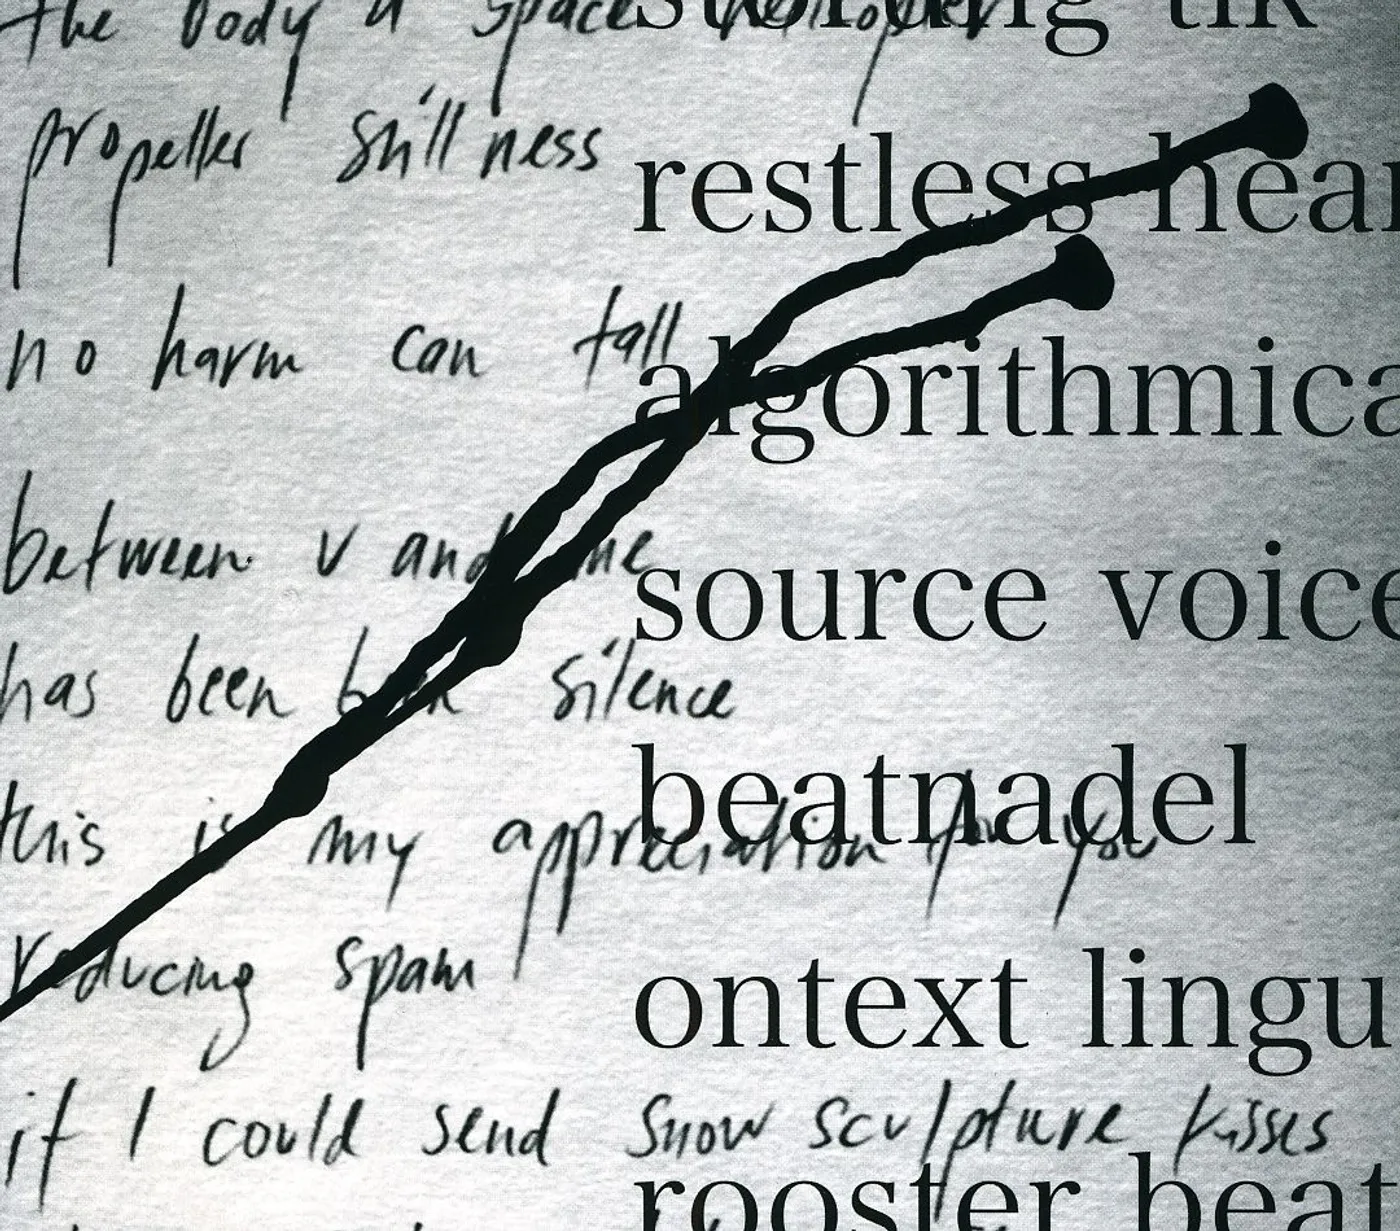 the body a space helicopter
propeller stillness
no harm can fall
between v and me
has been silence
this is my appreciation for you
reducing spam
if I could send snow sculpture kisses
restless hear
algorithmica
source voice
beatnadel
ontext lingu
rooster beat